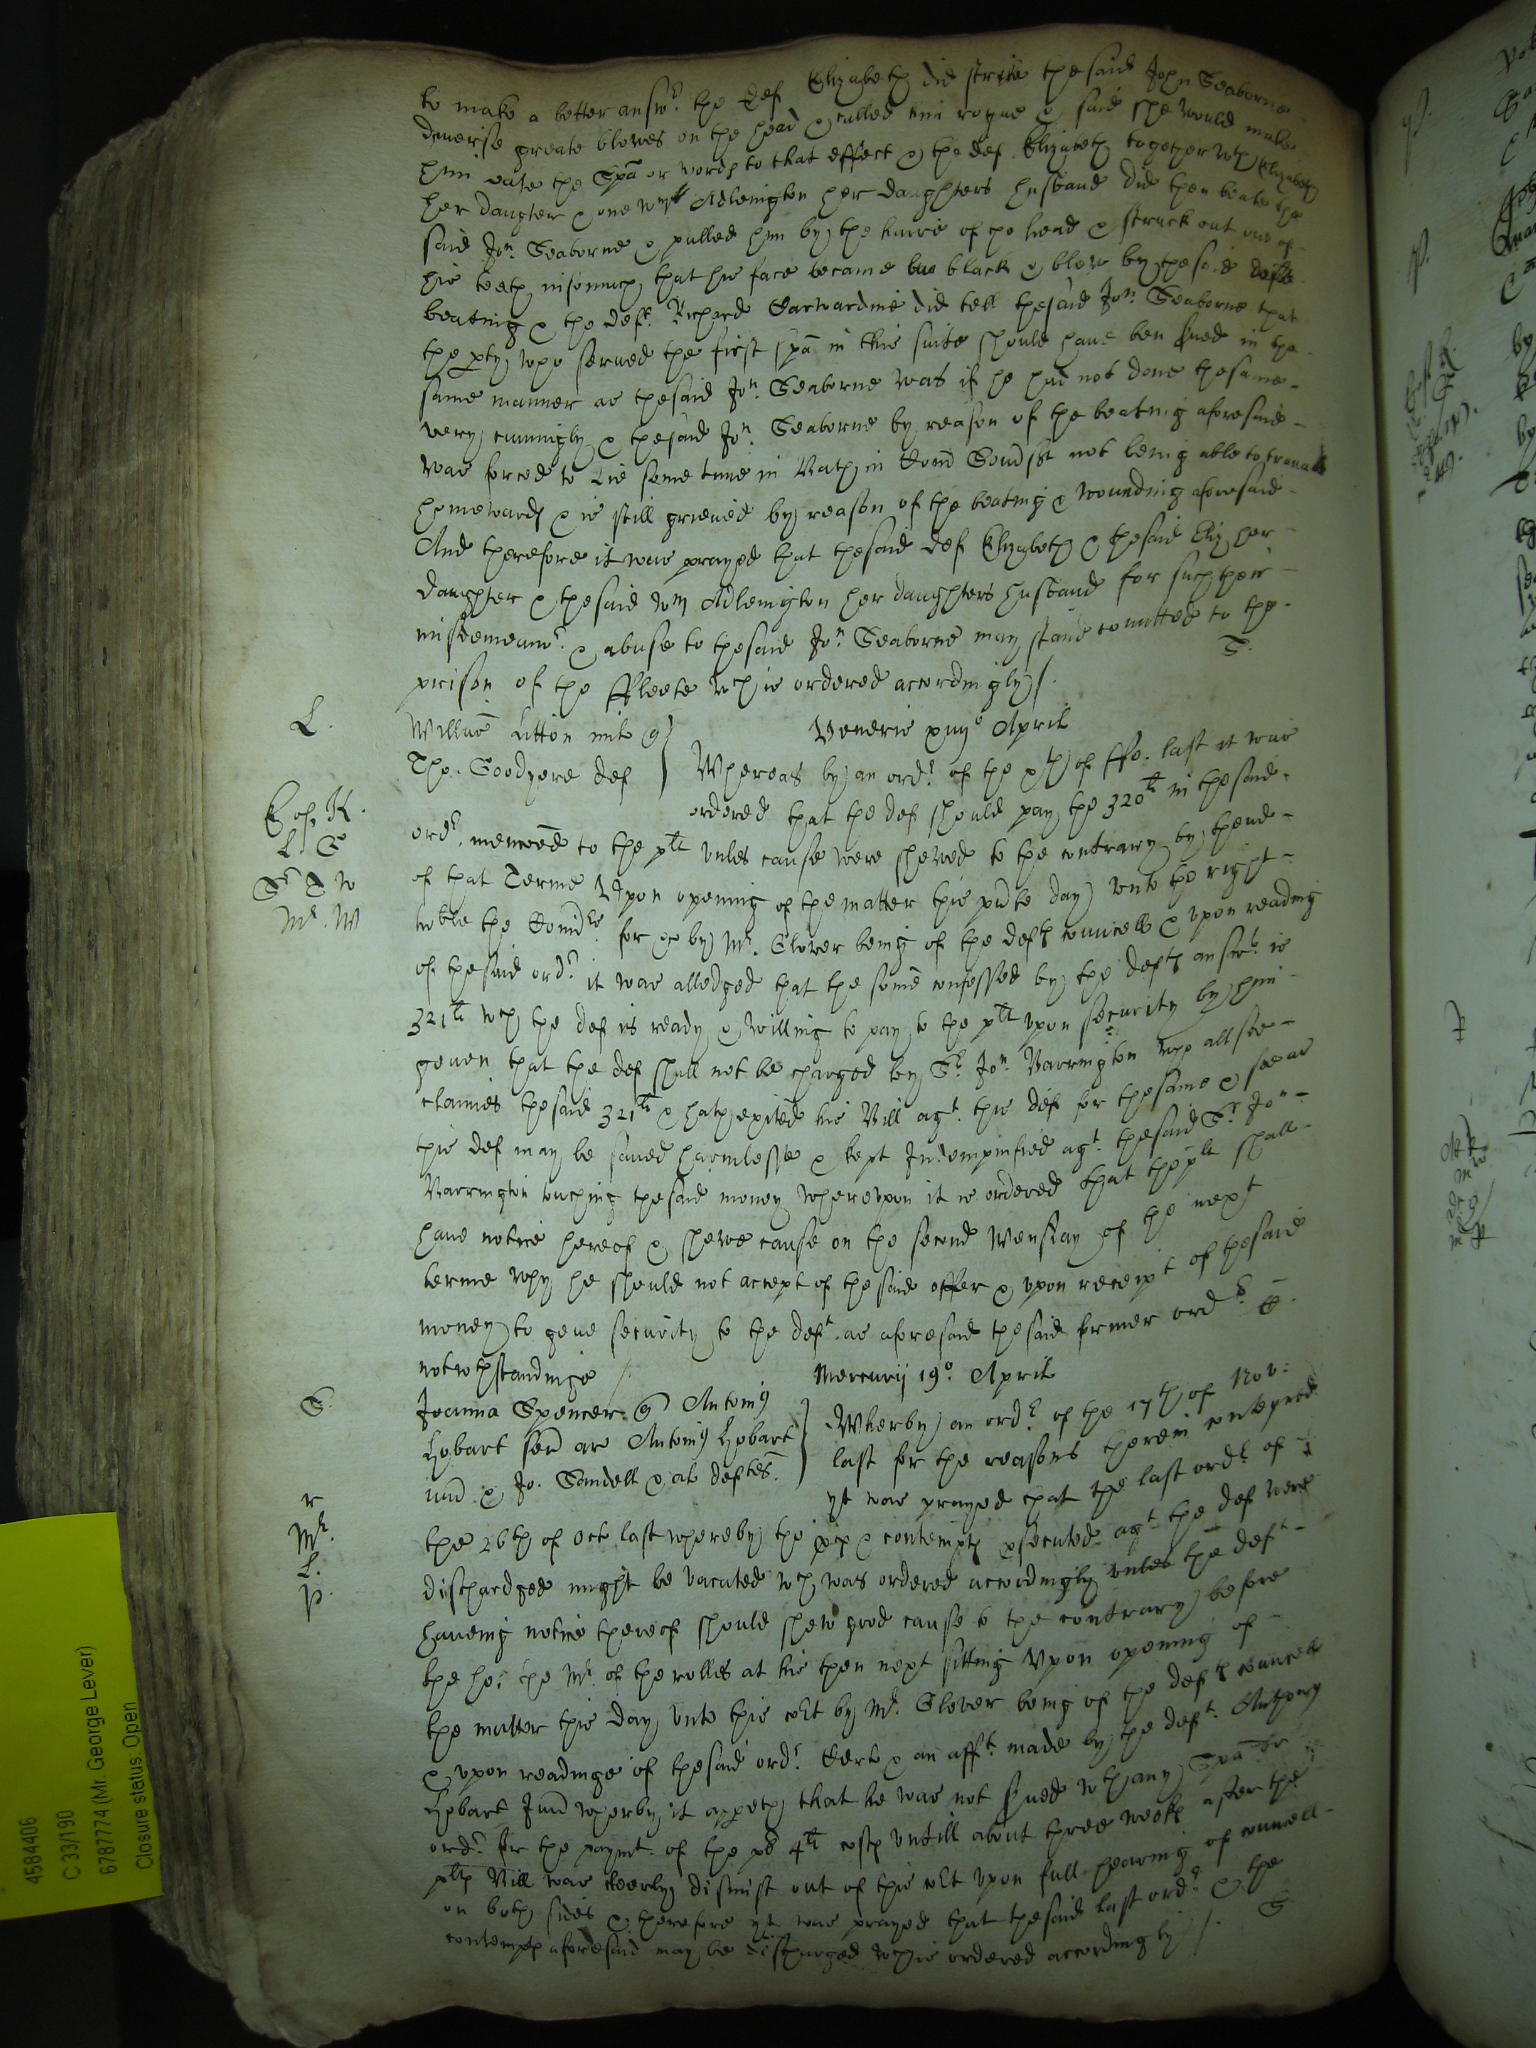 to make a better answr. the def Elizabeth did strike the said John Seaborne
diverse greate blowes on the head & called him rogue & said she would make
him eate the Spa or words to that effect & the def. Elizabeth together wth Elizabeth
her daughter & one Wm Adlenigton her daughters husband did then beate the
said Jon. Seaborne & pulled him by the haire of the head & struck out one of
his teeth insomuch that his face became black & blew by the said
beating & the deft. Richard Carwardine did tell the said Jon. Seaborne that
the pty who served the first spa in this suite should have ben sued in the
same manner as the said Jon. Seaborne was if he had not done the same
very cunnigly & the said Jon. Seaborne by reason of the beatnig aforesaid
was forced to lie some time in Bath in Com Somst not being able to travaile
homewards & is still grieved by reason of the beating & wounding aforesaid
And therefore it was prayed that the said def Elizabeth & the said Eliz her
daughter & the said Wm Adlenigton her daughters husband for such their
misdemeanr. & abuse to the said Jon. Seaborne may stand comitted to the
prison of the ffleete wch is ordered accordingly /.
S.
L.
Willmo Litton mile q
Tho. Goodyere def
Veneris xiiijo April
Whereas by an ordr of the xth of ffe. last it was
ordered that the def should pay the 320li in the said
E of K.
L S
Sr T W
Mr. W
ordr. menconed to the plt unles cause were shewed to the contrary by thend
of that Terme Upon opening of the matter this pnte day unto the right
hoble the Comrs. for by Mr. Glover being of the defts councell & upon reading
of the said ordr. it was alledged that the some confessed by the defts answr. is
321li wch the def is ready & willing to pay to the plt upon security by him
geven that the def shall not be charged by Sr. Jon. Barrington who allsoe
claimes the said 321li & hath exited his Bill agt. this def for the same & soe as
this def may be saved harmlesse & kept Indempnified agt. the said Sr Jon
Barrington touching the said money whereupon it is ordered that the plt shall
have notice hereof & shewe cause on the second Wensday of the next
terme why he should not accept of the said offer & upon receipt of the said
money to geve security to the deft. as aforesaid the said former ordr.
notwthstandinge /
S.
Mercurij 19o. April
Joanna Spencer q Antoniu
Hobart sen ar Antoniu Hobart
iun & Jo. Samdell & als deftes.
Wherby an ordr. of the 17th of Nov:
last for the reasons therein conteyned
yt was prayed that the last ordr. of
r
Mr.
L.
p.
the 26th of Oct last whereby the pces & contempts psecuted agt. the def were
dischardged might be vacated wch was ordered accordingly unles the deft
haveing notice thereof should shew good cause to the contrary before
the ho: the Mr. of the rolles at his then next sitting Upon opening of
the matter this day unto this cort by Mr. Glover being of the defts councell
& upon readinge of the said ordr. Certe & an afft. made by the deft. Anthony
Hobart Jun wherby it appeth that he was not sued wth any Spa or
ordr. for the paymt. of the 4li costs untill about three weeks after the
plts Bill was cleerly dismist out of this cort upon full hearing of councell
on both sides & therefore yt was prayed that the said last ordr. & the
contempts aforesaid may be discharged wch is ordered accordingly /.
S
4584406
C 33/190
67877774 (Mr. George Lever)
Closure status: Open